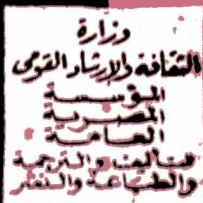 وزارة
الثقافة والإرشاد القومى
المؤسسة
المصرية
العامة
للتأليف والترجمة
والطباعة والنشر